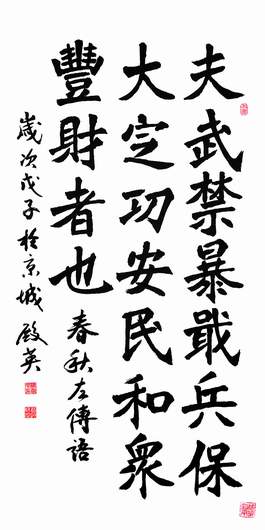 夫武禁暴戢兵保
大定功安民和衆
豐財者也
春秋左傳語
歲次戊子於京城殿英